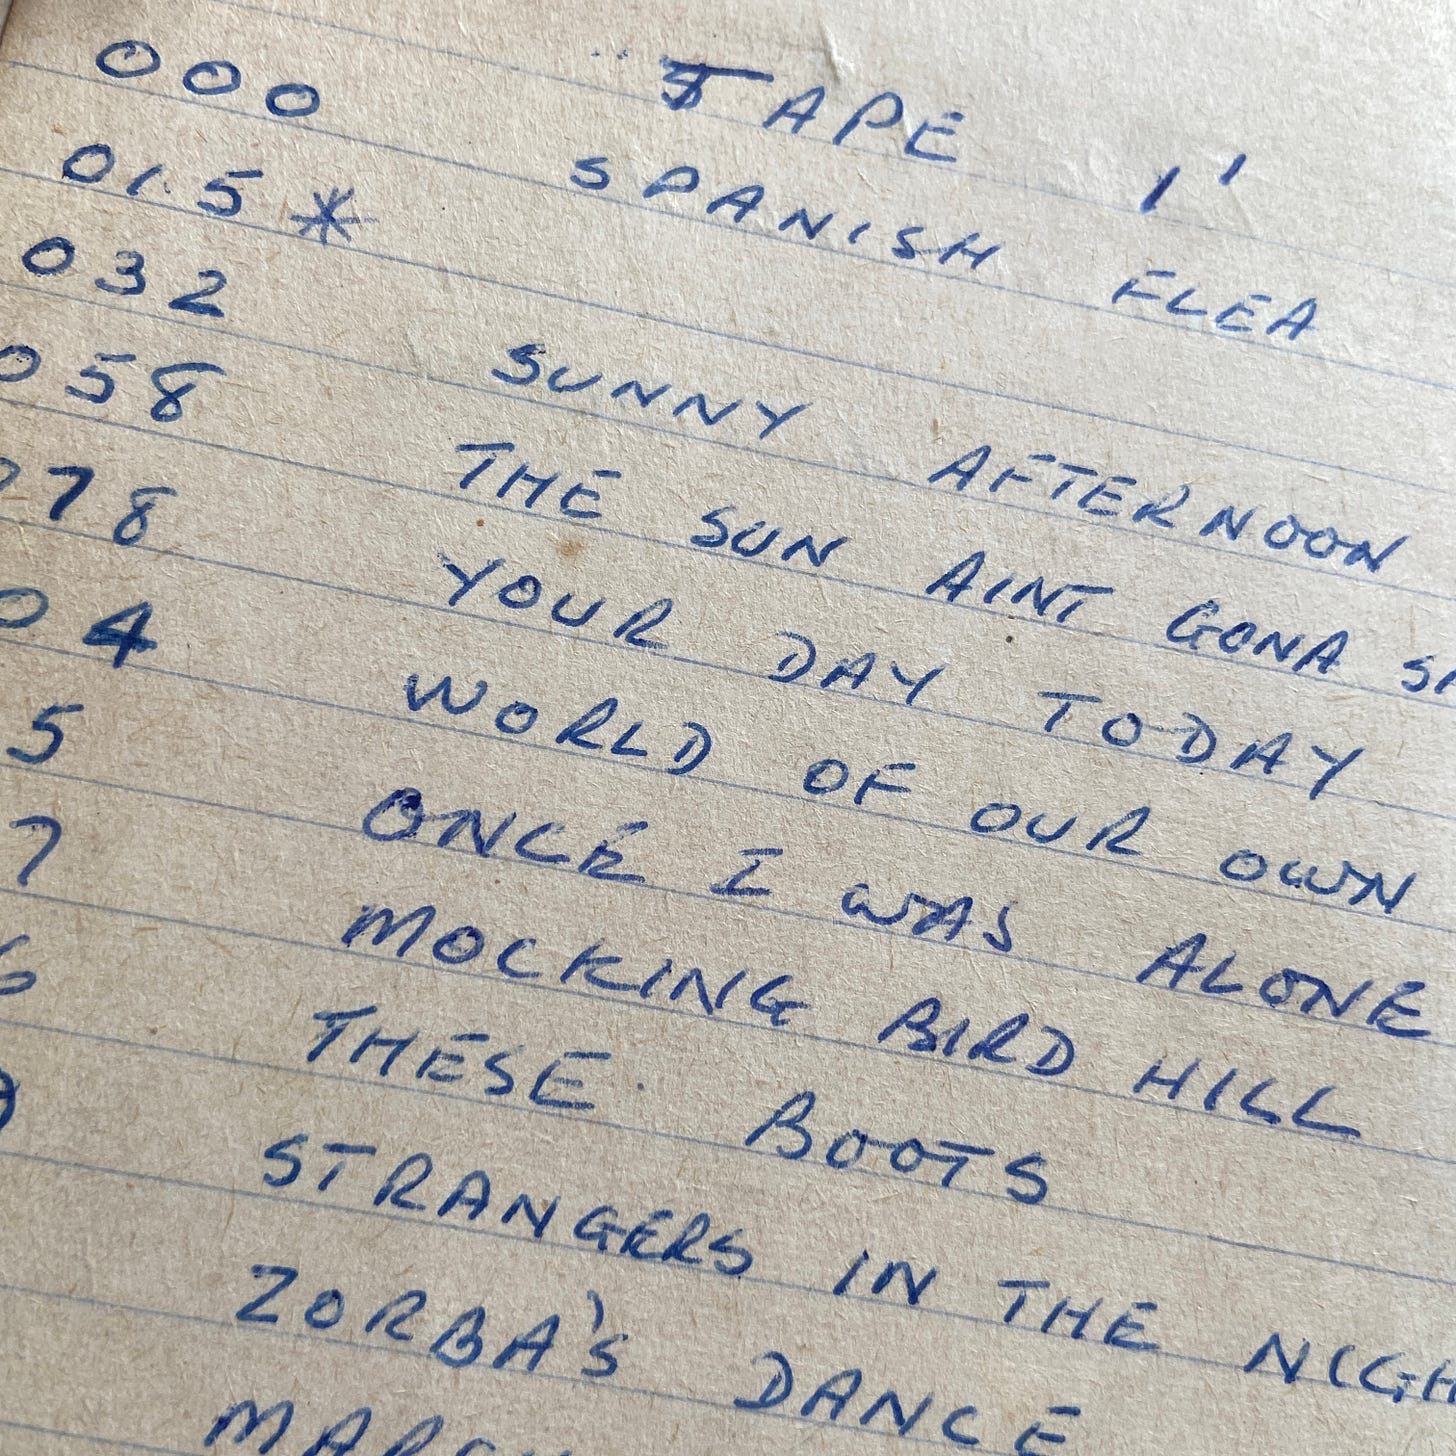 TAPE 1'
000 SPANISH FLEA
015 *
032 SUNNY AFTERNOON
058 THE SUN AINT GONA
78 YOUR DAY TODAY
04 WORLD OF OUR OWN
5 ONCE I WAS ALONE
7 MOCKING BIRD HILL
6 THESE BOOTS
STRANGERS IN THE NIGH
ZORBA'S DANCE